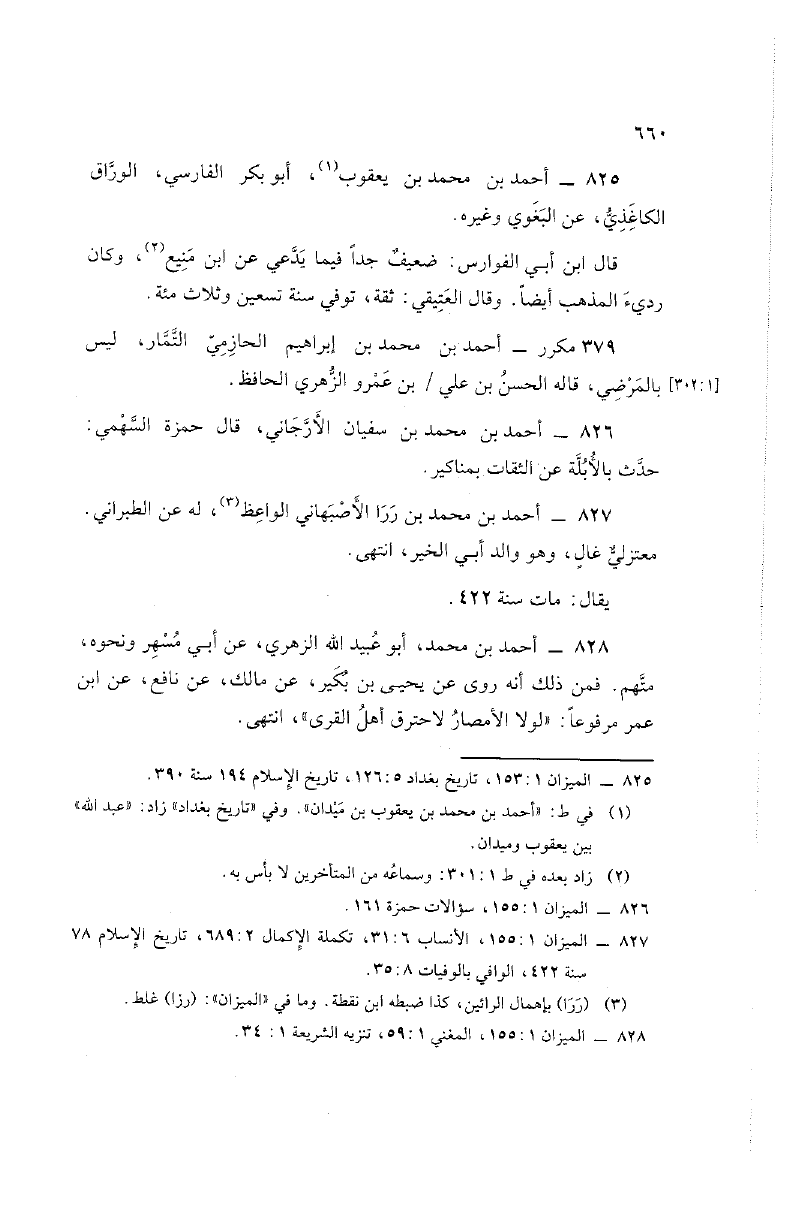 ٦٦٠
٨٢٥ ــ أحمد بن محمد بن يعقوب(١)، أبو بكر الفارسي، الورَّاق
الكاغَِذِيُّ، عن البَغَوي وغيره.
قال ابن أبي الفوارس: ضعيفٌ جداً فيما يَدَّعي عن ابن مَنِيع(٢)، وكان
رديءَ المذهب أيضاً. وقال العَتِيقي: ثقة، توفي سنة تسعين وثلاث مئة.
٣٧٩ مكرر ــ أحمد بن محمد بن إبراهيم الحازِمِيّ التَّمَّار، ليس
[٣٠٢:١] بالمَرْضِي، قاله الحسنُ بن علي / بن عَمْرو الزُّهري الحافظ.
٨٢٦ ــ أحمد بن محمد بن سفيان الأَرَّجَاني، قال حمزة السَّهْمي:
حدَّث بالأُبُلَّة عن الثقات بمناكير.
٨٢٧ ــ أحمد بن محمد بن رَرَا الأَصْبَهاني الواعِظ(٣)، له عن الطبراني.
معتزليٌّ غالٍ، وهو والد أبي الخير، انتهى.
يقال: مات سنة ٤٢٢.
٨٢٨ ــ أحمد بن محمد، أبو عُبيد الله الزهري، عن أبي مُسْهِر ونحوه،
متَّهم. فمن ذلك أنه روى عن يحيى بن بُكَير، عن مالك، عن نافع، عن ابن
عمر مرفوعاً: «لولا الأمصارُ لاحترق أهلُ القرى»، انتهى.
٨٢٥ ــ الميزان ١:١٥٣، تاريخ بغداد ٥:١٢٦، تاريخ الإسلام ١٩٤ سنة ٣٩٠.
(١) في ط: «أحمد بن محمد بن يعقوب بن مَيْدان». وفي «تاريخ بغداد» زاد: «عبد الله»
بين يعقوب وميدان.
(٢) زاد بعده في ط ١:٣٠١: وسماعُه من المتأخرين لا بأس به.
٨٢٦ ــ الميزان ١:١٥٥، سؤالات حمزة ١٦١.
٨٢٧ ــ الميزان ١:١٥٥، الأنساب ٦:٣١، تكملة الإكمال ٢:٦٨٩، تاريخ الإسلام ٧٨
سنة ٤٢٢، الوافي بالوفيات ٨:٣٥.
(٣) (رَرَا) بإهمال الرائين، كذا ضبطه ابن نقطة. وما في «الميزان»: (رزا) غلط.
٨٢٨ ــ الميزان ١:١٥٥، المغني ١:٥٩، تنزيه الشريعة ١:٣٤.